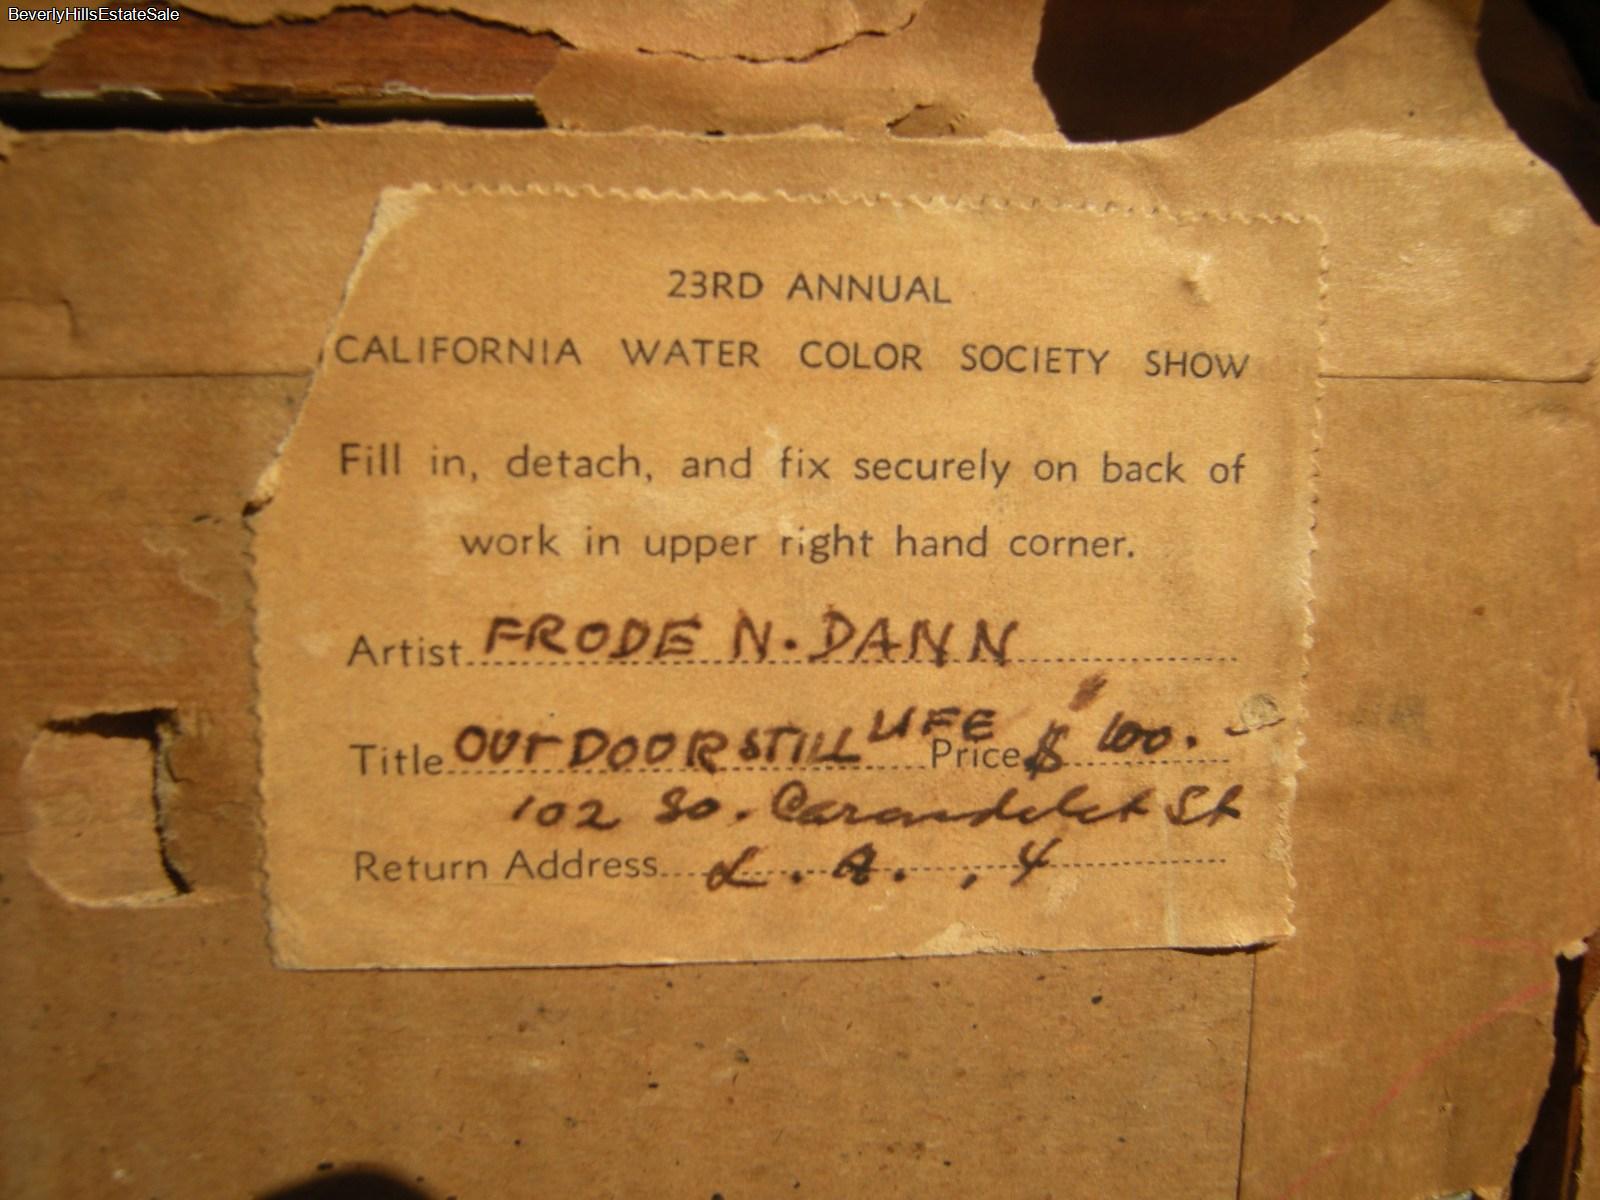 BeverlyHillsEstateSale
23RD ANNUAL
CALIFORNIA WATER COLOR SOCIETY SHOW
Fill in, detach, and fix securely on back of
work in upper right hand corner.
Artist FRODE N. DANN
Title OUTDOOR STILL LIFE Price $ 100. -
102 So. Carondelet St
Return Address L. A. , 4